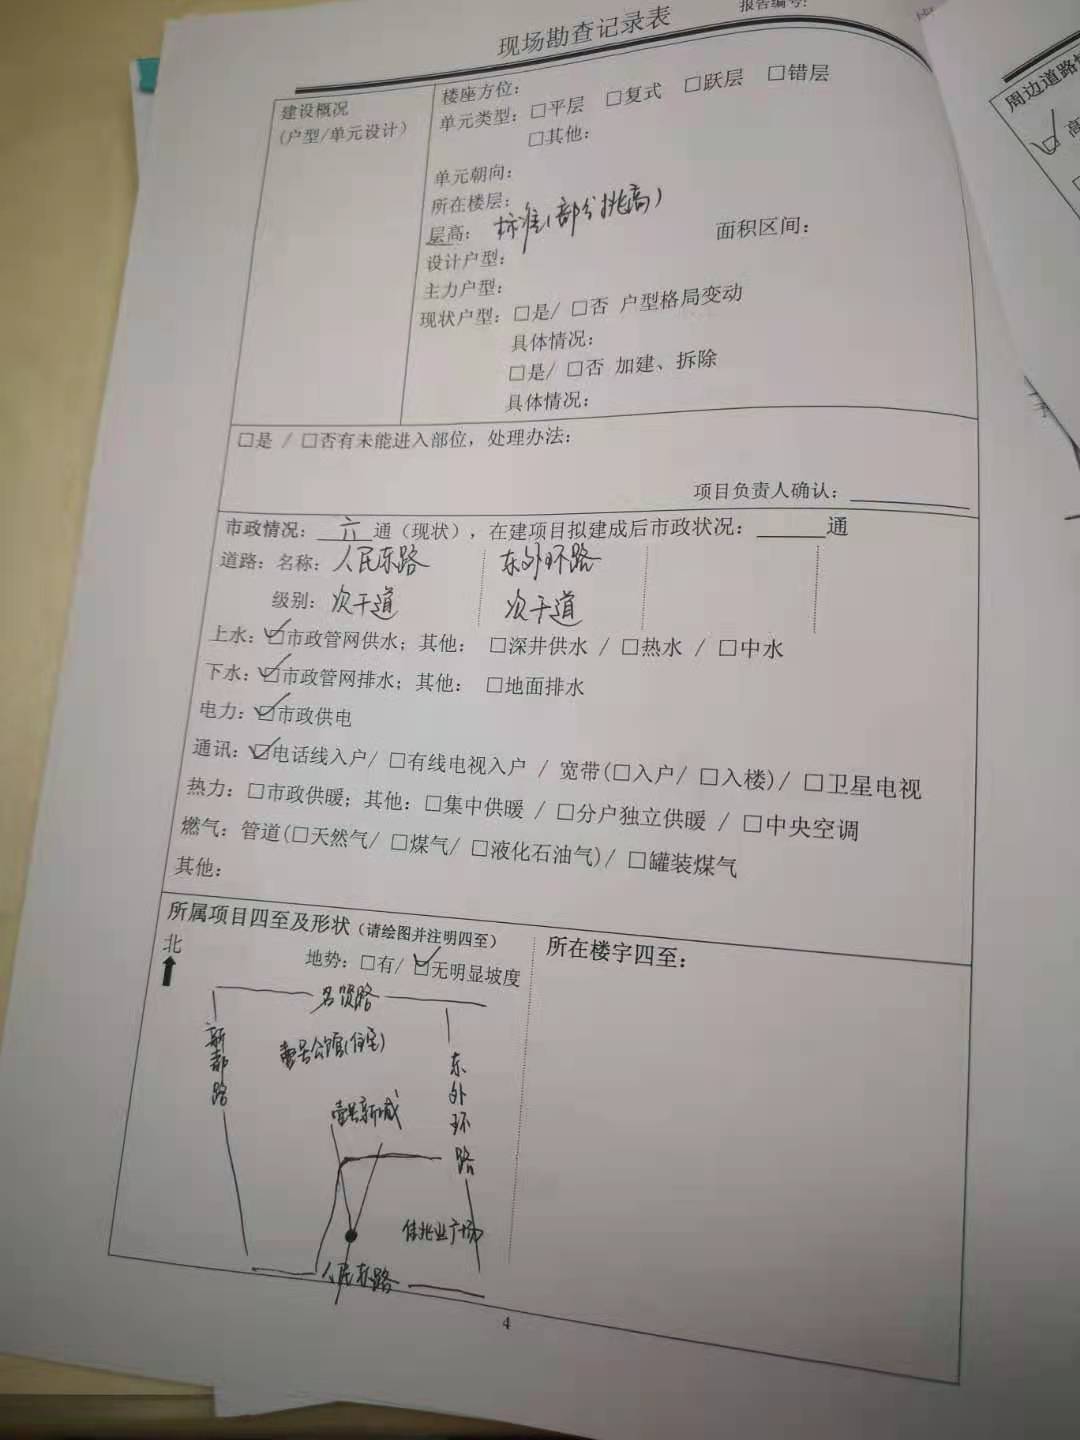 现场勘查记录表
报告编号:
建设概况
(户型/单元设计)
楼座方位:
单元类型: □平层 □复式 □跃层 □错层
□其他:
单元朝向:
所在楼层:
层高: 标准(部分挑高)
面积区间:
设计户型:
主力户型:
现状户型: □是/ □否 户型格局变动
具体情况:
□是/ □否 加建、拆除
具体情况:
□是 / □否有未能进入部位, 处理办法:
项目负责人确认:
市政情况: 六 通(现状), 在建项目拟建成后市政状况: 通
道路: 名称: 人民东路 东外环路
级别: 次干道 次干道
上水: ☑市政管网供水; 其他: □深井供水 / □热水 / □中水
下水: ☑市政管网排水; 其他: □地面排水
电力: ☑市政供电
通讯: ☑电话线入户/ □有线电视入户 / 宽带(□入户/ □入楼)/ □卫星电视
热力: □市政供暖; 其他: □集中供暖 / □分户独立供暖 / □中央空调
燃气: 管道(□天然气/ □煤气/ □液化石油气)/ □罐装煤气
其他:
所属项目四至及形状(请绘图并注明四至)
北
地势: □有/ ☑无明显坡度
名贤路
新都路
壹号公馆(住宅)
东外环路
壹号新城
佳兆业广场
人民东路
所在楼宇四至:
4
周边道路